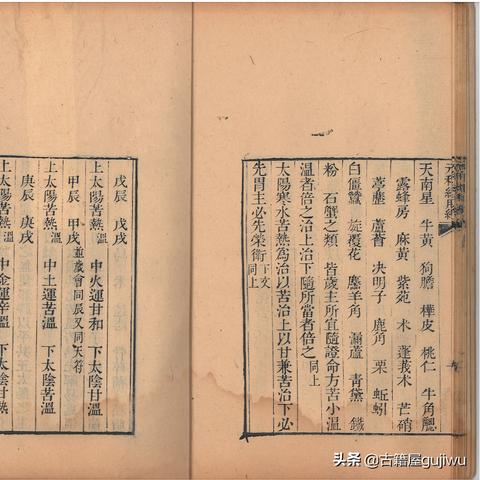 天南星 牛黃 狗膽 樺皮 桃仁 牛角䚡
露蜂房 麻黃 紫菀 木 蓬莪木 芒硝
葶藶 蘆薈 決明子 鹿角 栗 蚯蚓
白僵蠶 旋覆花 羚羊角 漏蘆 青黛 鐵
粉 石蟹之類 皆歲主所宜隨證命方苦小溫
溫者倍之治上治下隨所當者倍之同上
太陽寒水苦熱為治以苦治上以甘兼苦治下必
先胃主必先榮衛下文同上
戊辰 戊戌
上太陽苦熱溫 中火運甘和 下太陰甘溫
甲辰 甲戌並歲會同辰又同天符
上太陽苦熱溫 中土運苦溫 下太陰甘溫
庚辰 庚戌
上太陽苦熱溫 中金運辛溫 下太陰甘熱
头条 @古籍屋gujiwu